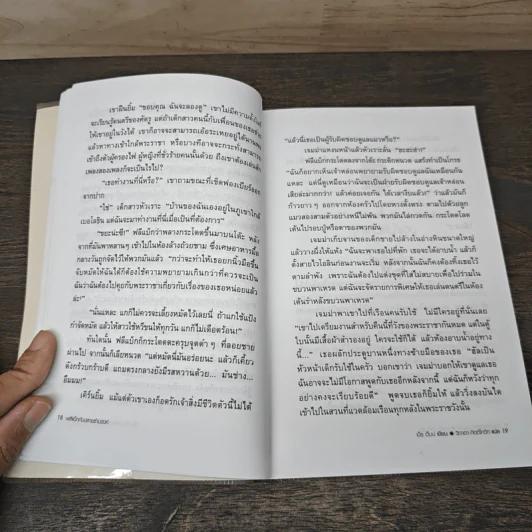 เขาฝืนยิ้ม "ขอบคุณ ฉันจะลองดู" เขาไม่มีความ
จะเรียนรู้ดนตรีของศัตรู แต่ถ้าเด็กสาวคนนี้กับเพื่อนของเธอ
ให้เขาอยู่ในวังได้ เขาก็อาจจะสามารถเอ้อระเหยอยู่ได้นาน
แล้วหาทางเข้าใกล้พระราชา หรือบางทีอาจจะกระทั่งสามารถ
เข้าถึงตัวผู้ครองไฟ ผู้หญิงที่ชั่วร้ายคนนั้นด้วย ถ้าเขาต้อง
เพลงสองเพลงก็จะเป็นไรไป
"เธอทำงานที่นี่หรือ?" เขาถามขณะที่เช็ดฟองเบียร์
จากปาก
"ใช่" เด็กสาวหัวเราะ "บ้านของฉันเองอยู่ในภูเขาใกล้
เบอโลธิน แต่ฉันจะมาทำงานที่นี่เมื่อเป็นที่ต้องการ"
"ชะะน่ะซี!" ฟลีแบ็กกระโดดขึ้นมาบนโต๊ะ หลัง
จากที่มันพาหลานๆ เข้าไปในห้องล้างถ้วยชาม ซึ่งเศษอาหารมื้อ
กลางวันถูกจัดไว้ให้พวกมันแล้ว "กว่าจะทำให้เธอยกนิ้วมือขึ้น
จับหมัดให้ฉันได้ก็ต้องใช้ความพยายามเกินกว่าที่ควรจะเป็น
ฉันว่าฉันต้องไปคุยกับพระราชาเกี่ยวกับเรื่องของเธอหน่อยแล้ว
ล่ะ!"
"นั่นแหละ แกก็ไม่ควรจะเลี้ยงหมัดไว้เลยนี่ ถ้าแกใช้แป้ง
กำจัดหมัด แล้วให้สาวใช้หวีขนให้ทุกวัน แกก็ไม่เดือดร้อน!"
ทันใดนั้น ฟลีแบ็กก็กระโดดตะครุบจุดดำ ๆ ที่ลอยชาย
ผ่านไป จากนั้นก็เลียหนวด "แต่หมัดนี้มันอร่อยนะ แล้วก็เคี้ยว
ดังกร้วบกร้าบดี แถมตรงกลางยังมีรสหวานด้วย... มันช่าง...
อืมมม!"
เคิร์นยิ้ม แม้แต่ตัวเขาเองก็อดรักเจ้าสิ่งมีชีวิตตัวนี้ไม่ได้
18
"แล้วนี่เธอเป็นผู้รับผิดชอบดูแลแมวหรือ?"
เจมม่าแหงนหน้าแล้วหัวเราะลั่น "ชะะฮ่า!"
ฟลีแบ็กกระโดดลงจากโต๊ะ กระดิกหนวด แสร้งทำเป็นโกรธ
"ฉันก็อยากเห็นเจ้าหล่อนพยายามรับผิดชอบดูแลฉันเหมือนกัน
แหละ แต่นี่ดูเหมือนว่าฉันจะเป็นฝ่ายรับผิดชอบดูแลเจ้าหล่อน
เสียล่ะมากกว่า! ค่อยเจอกัน ได้เวลารีบแล้ว!" แล้วแมวมันก็
ก้าวยาว ๆ ออกจากห้องครัวไปโดยหางตั้งตรง ตามไปด้วยลูก
แมวสองสามตัวอย่างหนีไม่พ้น พวกมันไล่กวดกัน กระโดดโลด
เต้นไปรอบปู่หรือตาของพวกมัน
เจมม่าเก็บจานของเด็กชายไปล้างในอ่างหินขนาดใหญ่
แล้ววางผึ่งให้แห้ง "ฉันจะพาเธอไปที่พัก เธอจะได้อาบน้ำ แล้วก็
ตั้งสายไวโอลินก่อนงานจะเริ่ม หลังจากนั้นฉันก็คงต้องทิ้งเธอไว้
ตามลำพัง เพราะฉันต้องไปแต่งชุดที่ใส่ไม่สบายเพื่อไปร่วมใน
ขบวนพาเหรด แต่ฉันจะจัดรายการพิเศษให้เธอเล่นดนตรีในห้อง
เต้นรำหลังขบวนพาเหรด"
เจมม่าพาเขาไปที่เรือนคนรับใช้ ไม่มีใครอยู่ที่นั่นเลย
"เขาไปเตรียมงานสำหรับคืนนี้ที่วังของพระราชากันหมด แต่ในตู้
ใบนั้นมีเสื้อผ้าสำรองอยู่ ใครจะใช้ก็ได้ แล้วห้องอาบน้ำอยู่ทาง
นี้..." เธอผลักประตูบานหนึ่งทางซ้ายมือของเธอ "ฮัลเป็น
หัวหน้าเด็กรับใช้ในครัว บอกเขาว่า เจมม่าบอกให้เขาดูแลเธอ
ฉันอาจจะไม่มีโอกาสพูดกับเธออีกหลังจากนี้ แต่ฉันก็หวังว่าทุก
อย่างคงจะเรียบร้อยดี" พูดจบเธอก็ยิ้มให้ แล้ววิ่งลงบันได
เข้าไปในสวนที่แวดล้อมเรือนทุกหลังในพระราชวังนั้น
19